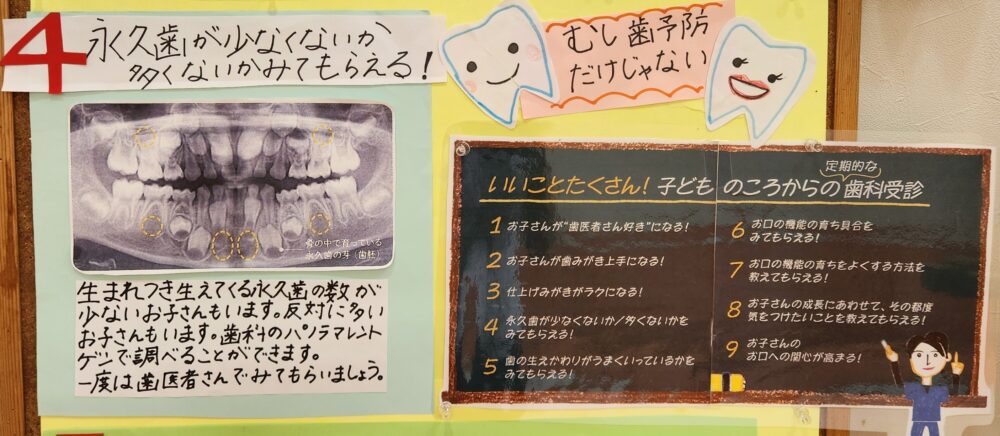 4 永久歯が少なくないか
多くないかみてもらえる!
骨の中で育っている
永久歯の芽(歯胚)
生まれつき生えてくる永久歯の数が
少ないお子さんもいます。反対に多い
お子さんもいます。歯科のパノラマレント
ゲンで調べることができます。
一度は歯医者さんでみてもらいましょう。
むし歯予防
だけじゃない
定期的な
いいことたくさん!子どものころからの歯科受診
1 お子さんが“歯医者さん好き”になる!
2 お子さんが歯みがき上手になる!
3 仕上げみがきがラクになる!
4 永久歯が少なくないか/多くないかを
みてもらえる!
5 歯の生えかわりがうまくいっているかを
みてもらえる!
6 お口の機能の育ち具合を
みてもらえる!
7 お口の機能の育ちをよくする方法を
教えてもらえる!
8 お子さんの成長にあわせて、その都度
気をつけたいことを教えてもらえる!
9 お子さんの
お口への関心が高まる!